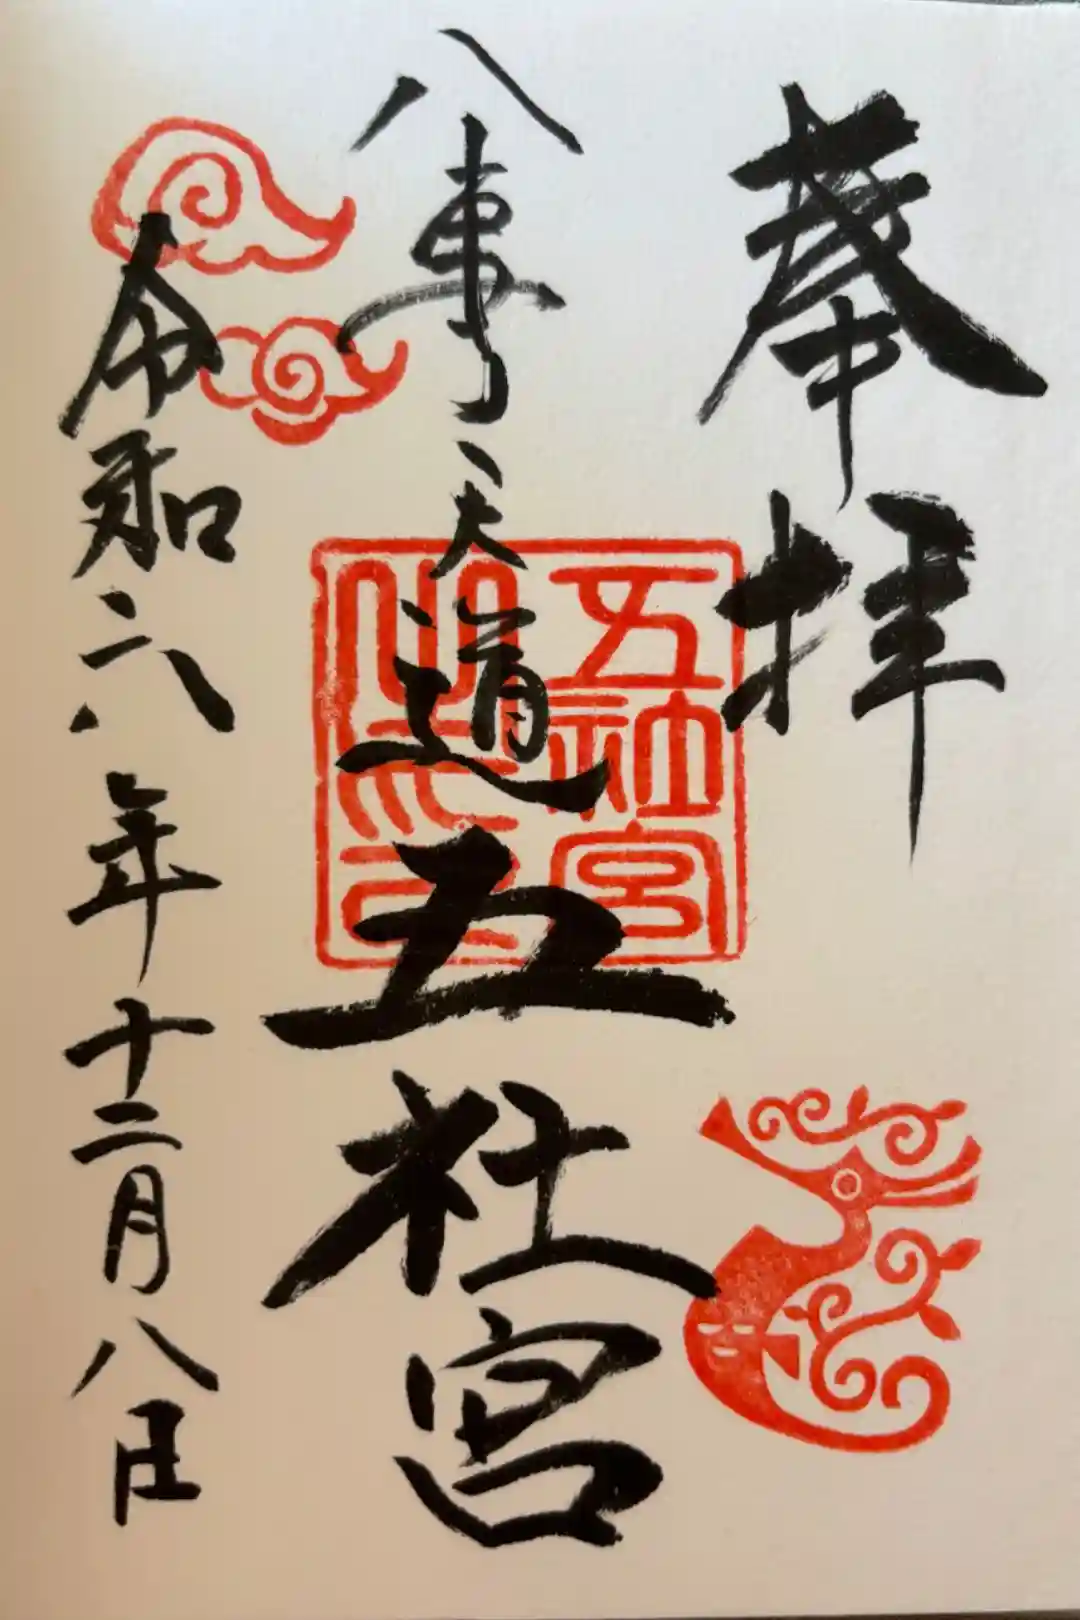 奉拝
八事天道
五社宮
五社宮
令和六年十二月八日